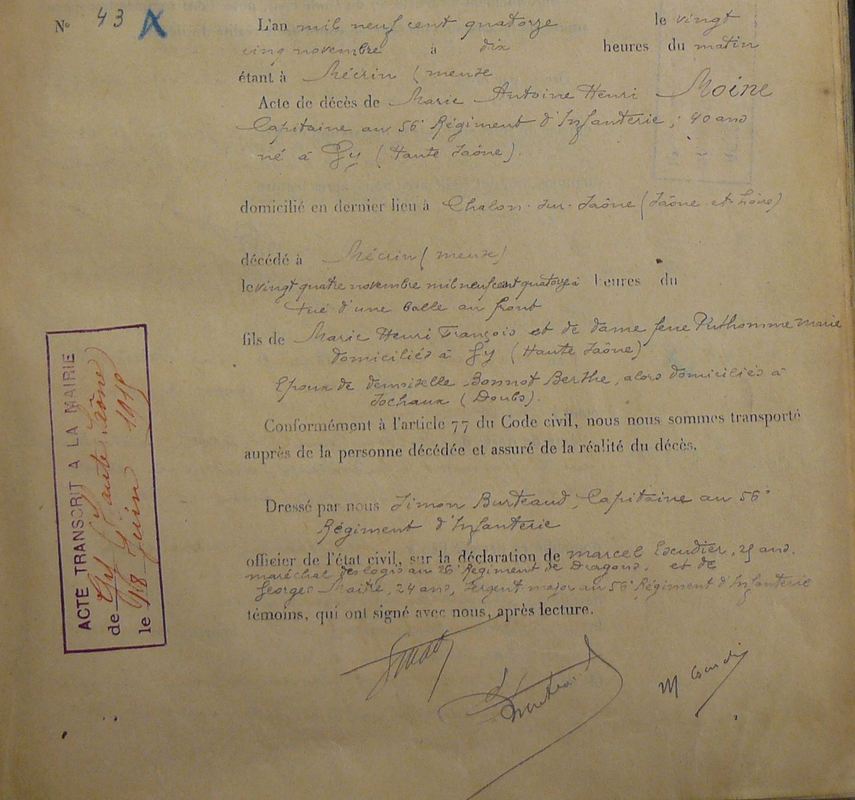 N° 43 X
L'an mil neuf cent quatorze le vingt
cinq novembre à dix heures du matin
étant à Mécrin (meuse
Acte de décès de Marie Antoine Henri Moine
Capitaine au 56e Régiment d'Infanterie, 40 ans
né à Gy (Haute Saône).
domicilié en dernier lieu à Chalon-sur-Saône (Saône-et-Loire)
décédé à Mécrin (meuse)
le vingt quatre novembre mil neuf cent quatorze à heures du
tué d'une balle au front
fils de Marie Henri François et de dame feue Prthomme Marie
domiciliés à Gy (Haute Saône)
Epoux de demoiselle Bonnot Berthe, alors domiciliés à
Sochaux (Doubs).
Conformément à l'article 77 du Code civil, nous nous sommes transporté
auprès de la personne décédée et assuré de la réalité du décès.
Dressé par nous Simon Burteaud, Capitaine au 56e
Régiment d'Infanterie
officier de l'état civil, sur la déclaration de marcel Escudier, 25 ans,
maréchal des logis au 26e Régiment de Dragons, et de
Georges Maitre, 24 ans, Sergent major au 56e Régiment d'Infanterie
témoins, qui ont signé avec nous, après lecture.
ACTE TRANSCRIT A LA MAIRIE
de Gy Haute Saône
le 18 Juin 1915